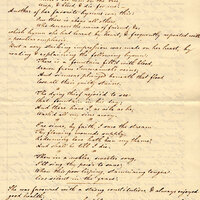 Another of her favorite hymns was this:
One there is above all others,
Who deserves the name of friend; &c,
which hymn she had learnt by heart, & frequently repeated with
peculiar emphasis.
But a very striking impression was made on her heart, by
reading & explaining the following hymn:
There is a fountain filled with blood
Drawn from Immanuel's veins;
And sinners plunged beneath that flood
Loose all their guilty stains.
The dying thief rejoiced to see
that fountain in his day;
And there have I, as vile as he,
Washed all my sins away.
E'er since, by faith, I saw the stream
Thy flowing wounds supply:
Redeeming love has been my theme
And shall be till I die.
Then in a nobler, sweeter song
I'll sing thy power to save;
When this poor lisping, stammering tongue
Lies silent in the grave.
She was favoured with a strong constitution, & always enjoyed
good health